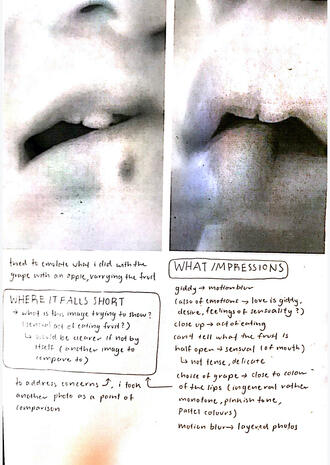 tried to emulate what i did with the
grape with an apple, varrying the fruit
WHERE IT FALLS SHORT
→ what is this image trying to show?
(sensual act of eating fruit?)
↳ would be clearer if not by
itself (another image to
compare to)
to address concerns ↗, i took
another photo as a point of
comparison
WHAT IMPRESSIONS
giddy → motion blur
(also of emotions → love is giddy,
desire, feelings of sensuality?)
close up → act of eating
(can't tell what the fruit is
half open → sensual (of mouth)
↳ not tense, delicate
choice of grape → close to colour
of the lips (in general rather
monotone, pinkish tone,
pastel colours)
motion blur → layered photos